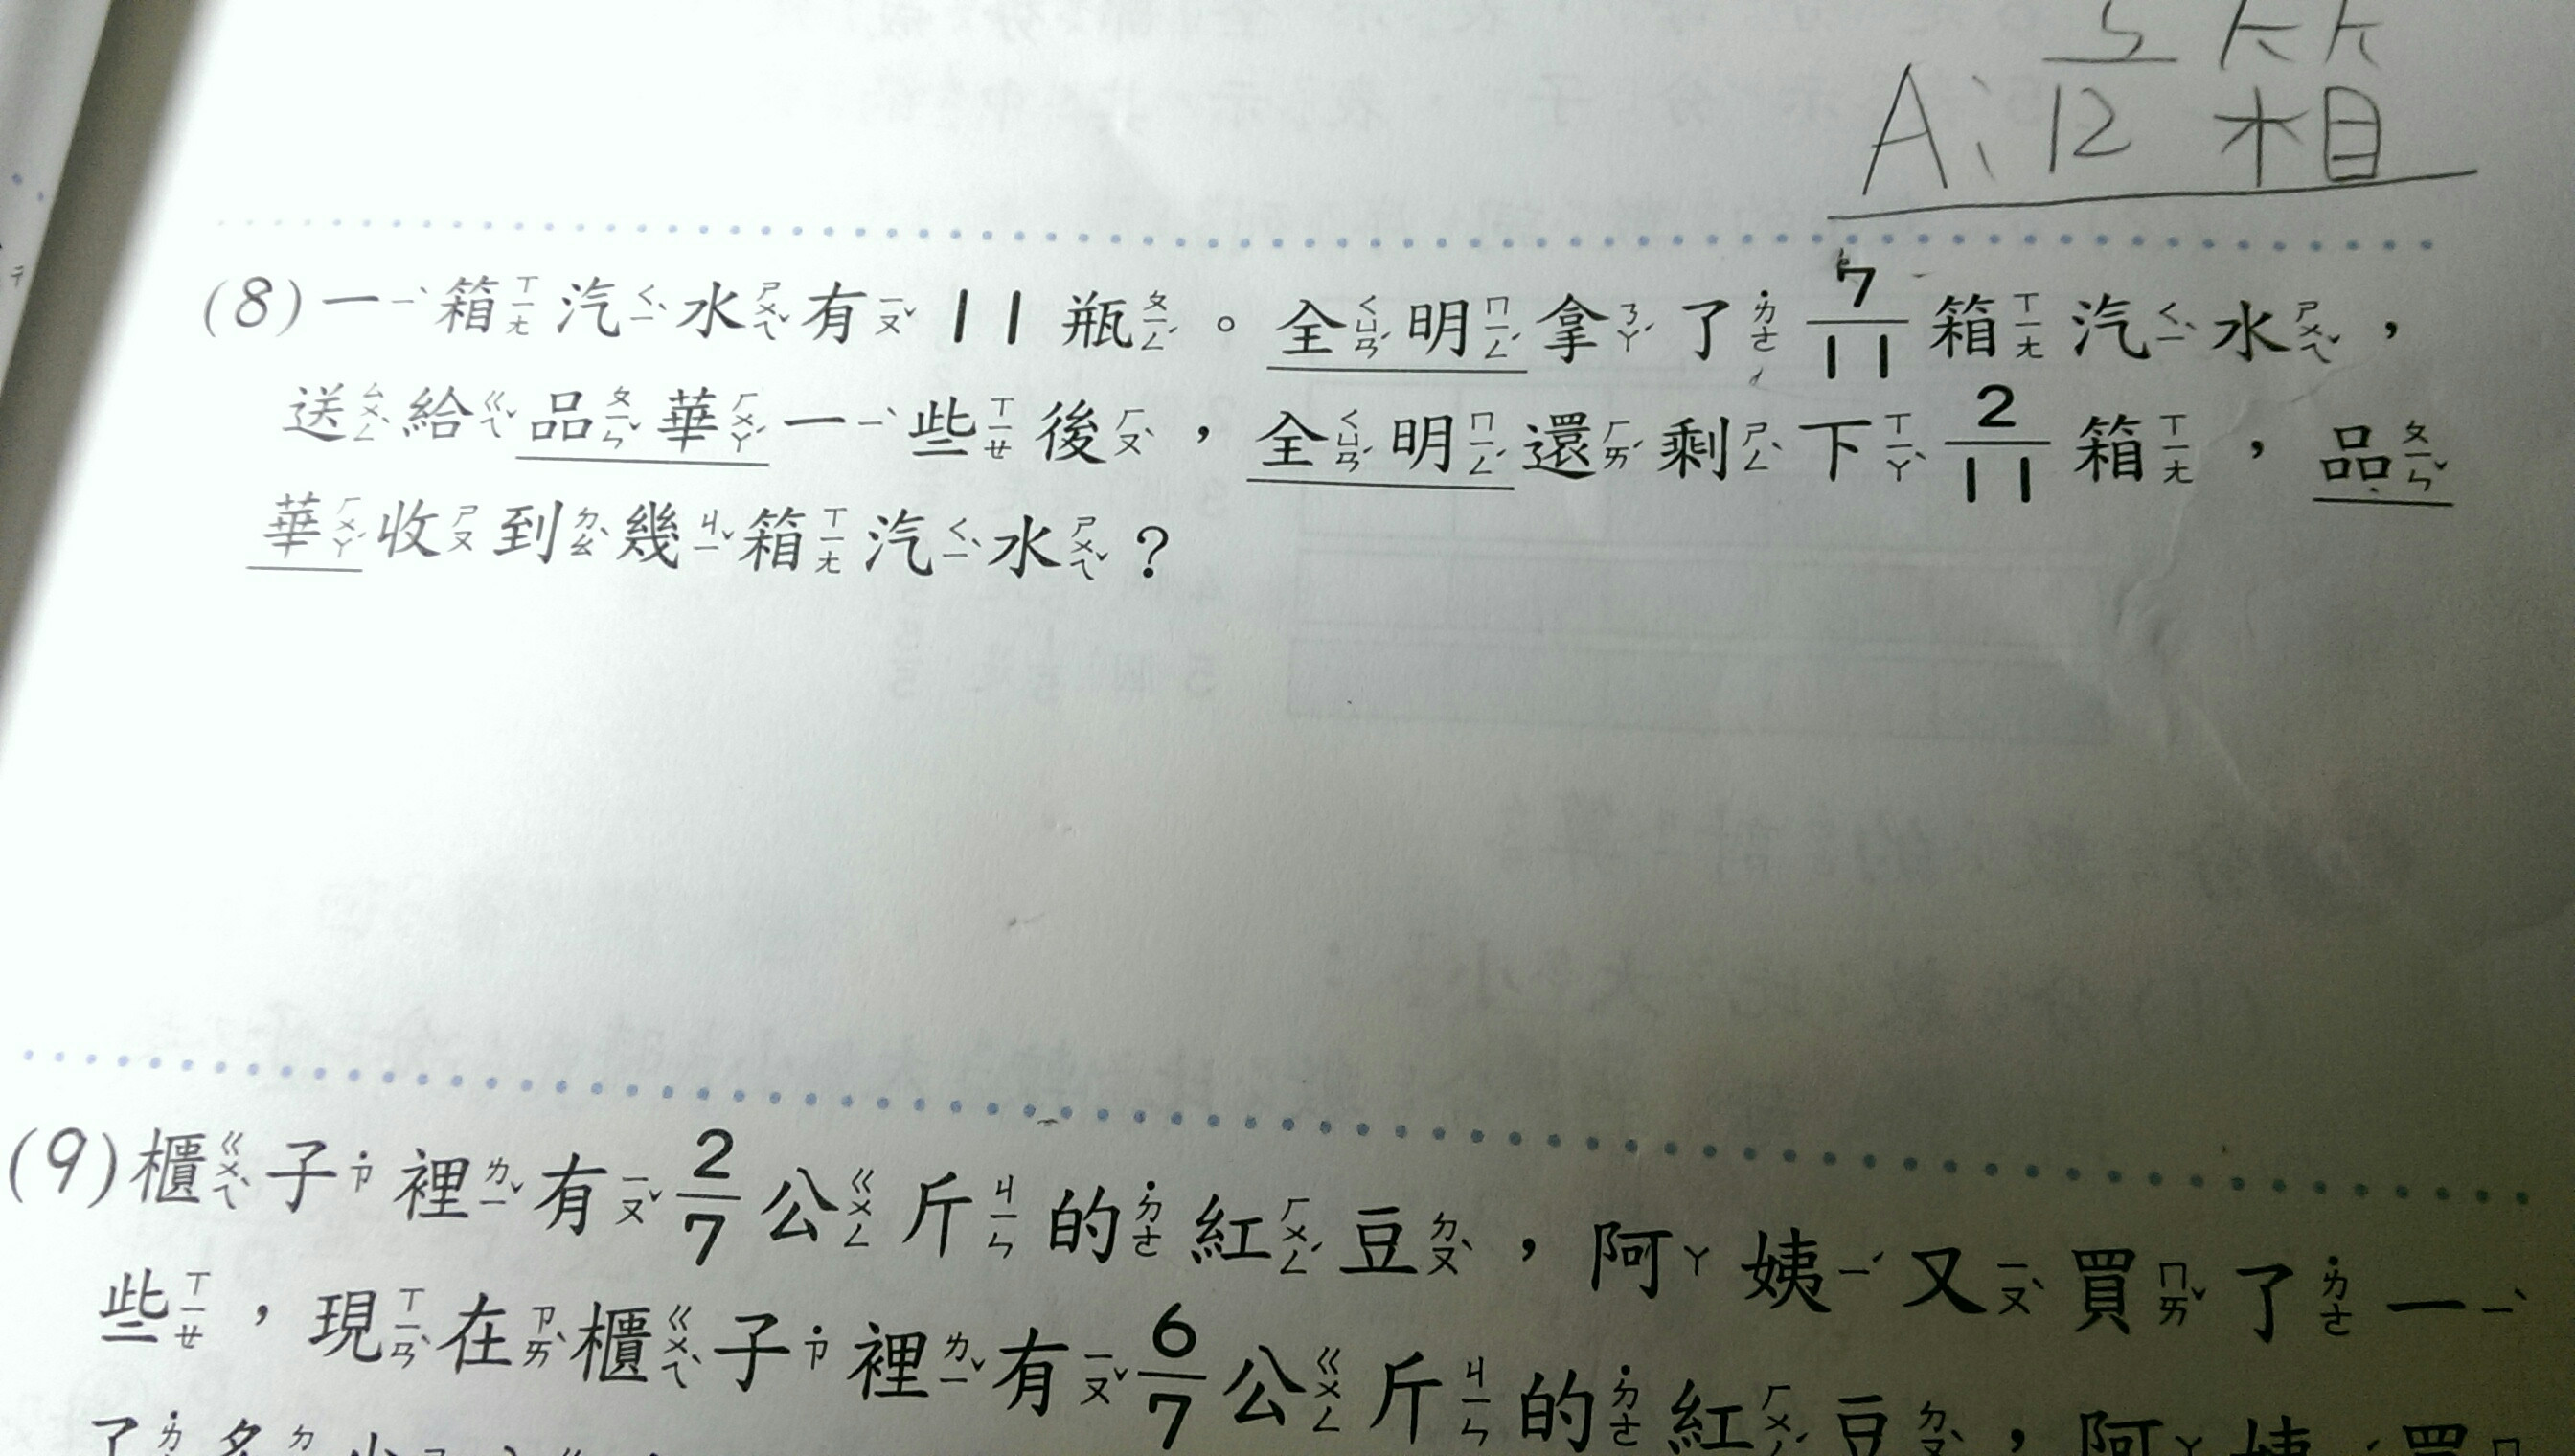 A: 5/12 箱
(8)一箱汽水有11瓶。全明拿了7/11箱汽水，
送給品華一些後，全明還剩下2/11箱，品
華收到幾箱汽水？
(9)櫃子裡有2/7公斤的紅豆，阿姨又買了一
些，現在櫃子裡有6/7公斤的紅豆，阿姨買
了多少